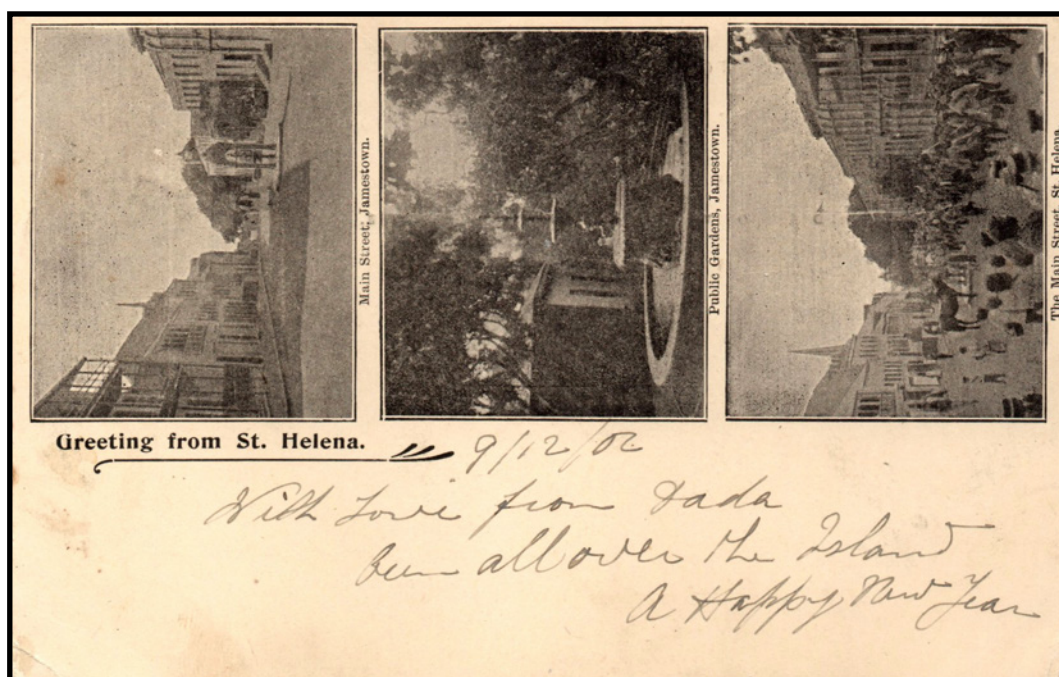 Main Street, Jamestown.
Public Gardens, Jamestown.
The Main Street, St Helena.
Greeting from St. Helena.
9/12/02
With Love from Dada
been all over the Island
A Happy New Year